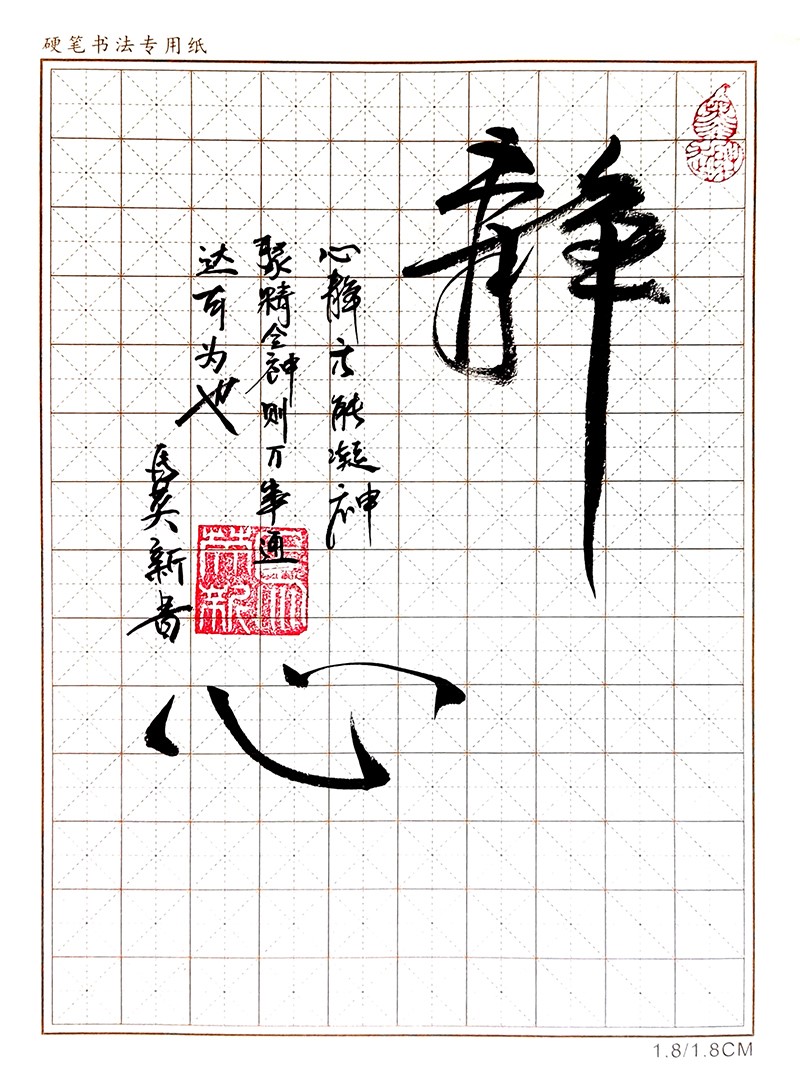 硬笔书法专用纸
静
心静方能凝神
聚精会神则万事通
达可为也
英新书
心
1.8/1.8CM